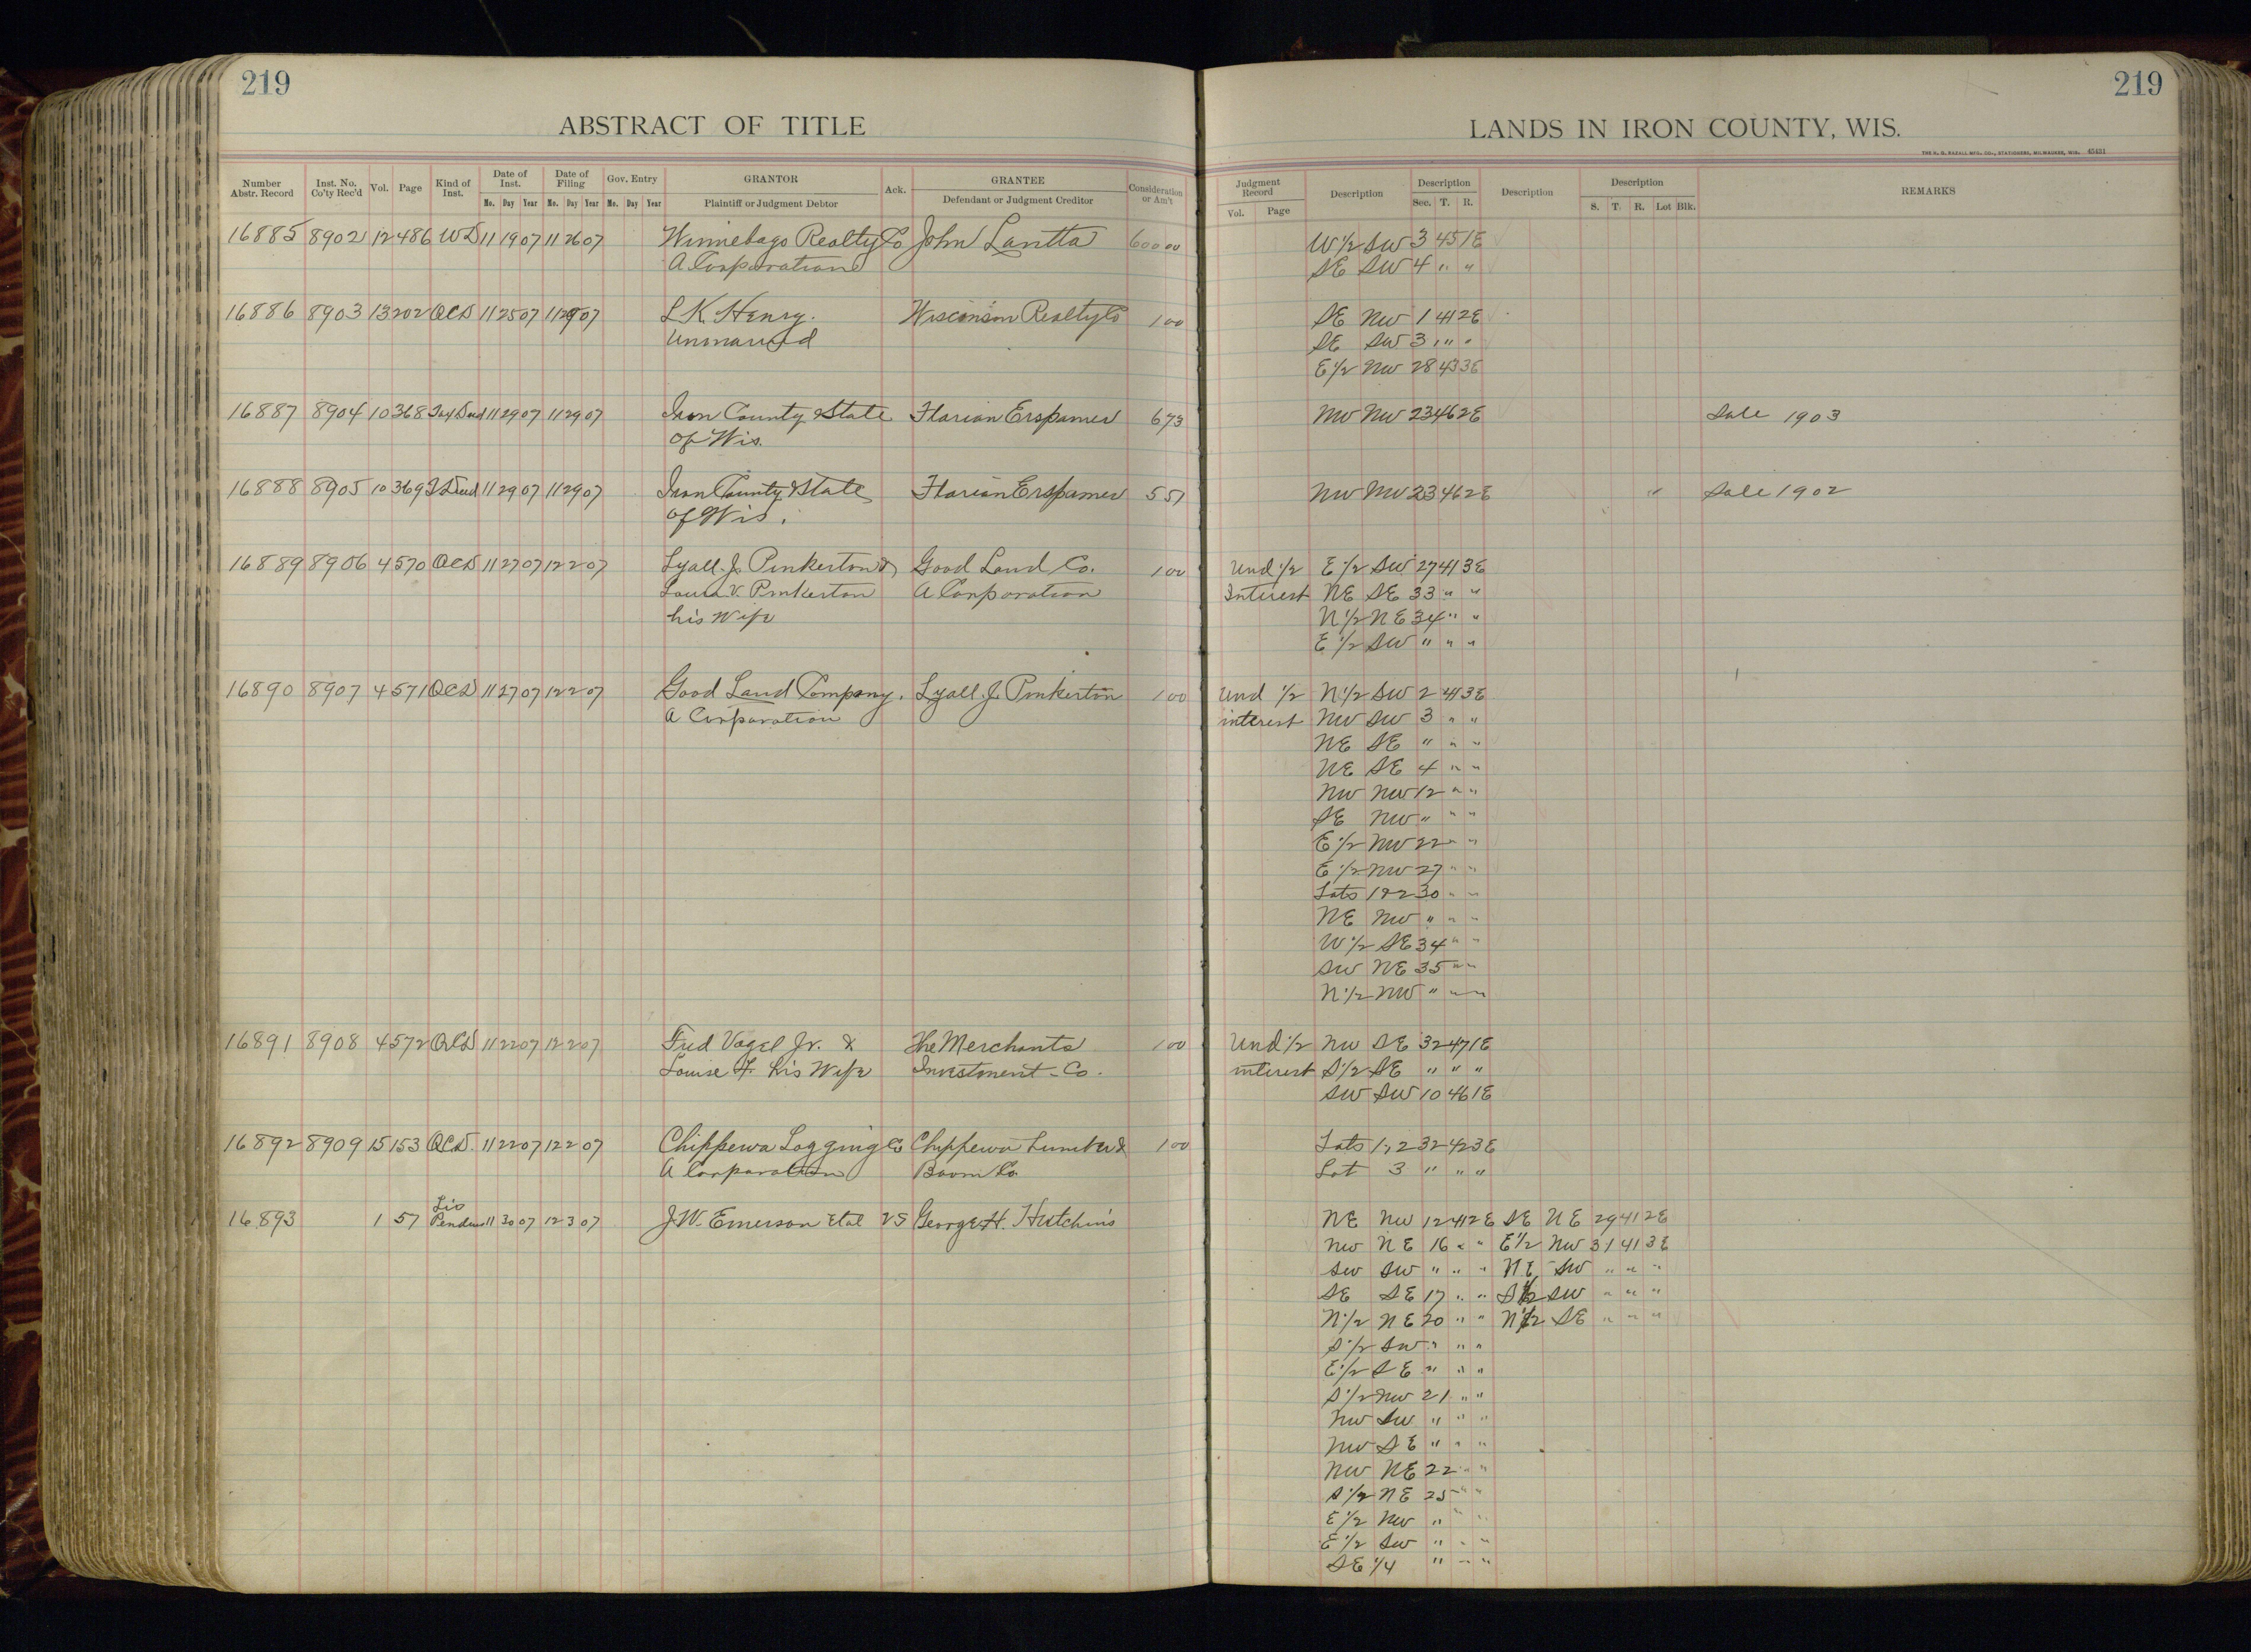 219
219
ABSTRACT OF TITLE
LANDS IN IRON COUNTY, WIS.
THE H. G. RAZALL MFG. CO., STATIONERS, MILWAUKEE, WIS. 45431
Number Abstr. Record Inst. No. Co'ty Rec'd Vol. Page Kind of Inst. Date of Inst. Mo. Day Year Date of Filing Mo. Day Year Gov. Entry Mo. Day Year GRANTOR Plaintiff or Judgment Debtor Ack. GRANTEE Defendant or Judgment Creditor Consideration or Am't
Judgment Record Vol. Page Description Description Sec. T. R. Description Description S. T. R. Lot Blk. REMARKS
16885 8902 12 486 WD 11 19 07 11 26 07 Winnebago Realty Co John Lantta 600 00 W 1/2 SW 3 45 1E
A Corporation SE SW 4 " "
16886 8903 13 202 QCD 11 25 07 11 29 07 L K. Henry. Wisconsin Realty Co 1 00 SE NW 1 41 2E
unmarried SE SW 3 " " "
E 1/2 NW 28 43 3E
16887 8904 10 368 Tax Deed 11 29 07 11 29 07 Iron County & State Florian Erspamer 6 73 NW NW 23 46 2E Sale 1903
of Wis.
16888 8905 10 369 T Deed 11 29 07 11 29 07 Iron County & State Florian Erspamer 5 51 NW NW 23 46 2E " Sale 1902
of Wis.
16889 8906 4 570 QCD 11 27 07 12 2 07 Lyall. J. Pinkerton & Good Land Co. 1 00 Und 1/2 E 1/2 SW 27 41 3E
Laura V. Pinkerton A Corporation Interest NE SE 33 " "
his Wife N 1/2 NE 34 " "
E 1/2 SW " " "
16890 8907 4 571 QCD 11 27 07 12 2 07 Good Land Company. Lyall. J. Pinkerton 1 00 Und 1/2 N 1/2 SW 2 41 3E
A Corporation interest NW SW 3 " "
NE SE " " "
NE SE 4 " "
NW NW 12 " "
SE NW " " "
E 1/2 NW 22 " "
E 1/2 NW 27 " "
Lots 1 & 2 30 " "
NE NW " " "
W 1/2 SE 34 " "
SW NE 35 " "
N 1/2 NW " " "
16891 8908 4 572 QCD 11 22 07 12 2 07 Fred Vogel Jr. & The Merchants 1 00 Und 1/2 NW SE 32 47 1E
Louise F. his Wife Investment Co. interest S 1/2 SE " " "
SW SW 10 46 1E
16892 8909 15 153 QCD. 11 22 07 12 2 07 Chippewa Logging Co Chippewa Lumber & 1 00 Lots 1, 2 32 42 3E
A Corporation Boom Co. Lot 3 " " "
16893 1 57 Lis Pendens 11 30 07 12 3 07 J. W. Emerson Etal VS George H. Hutchins NE NW 12 41 2E SE NE 29 41 2E
NW NE 16 " " E 1/2 NW 31 41 3E
SW SW " " " NE SW " " "
SE SE 17 " " S 1/2 SW " " "
N 1/2 NE 20 " " N 1/2 SE " " "
S 1/2 SW " " "
E 1/2 SE " " "
S 1/2 NW 21 " "
NW SW " " "
NW SE " " "
NW NE 22 " "
S 1/2 NE 25 " "
E 1/2 NW " " "
E 1/2 SW " " "
SE 1/4 " " "